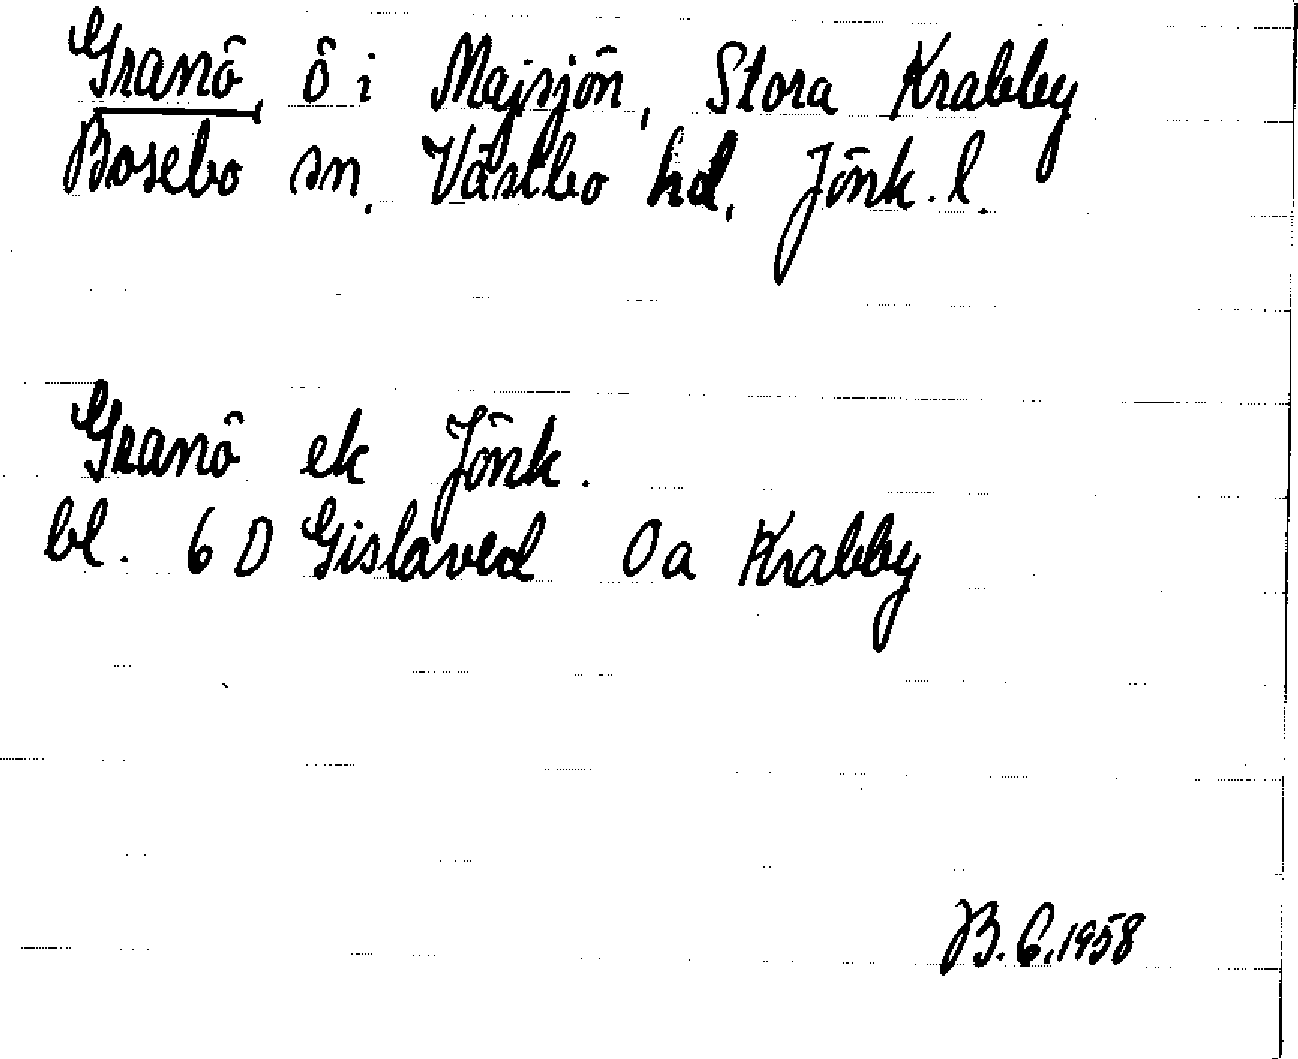 Granö, ö i Majsjön, Stora Krabby
Bosebo sn, Västbo hd, Jönk. l.
Granö ek Jönk.
bl. 6 D Gislaved 0 a Krabby
B. G. 1958